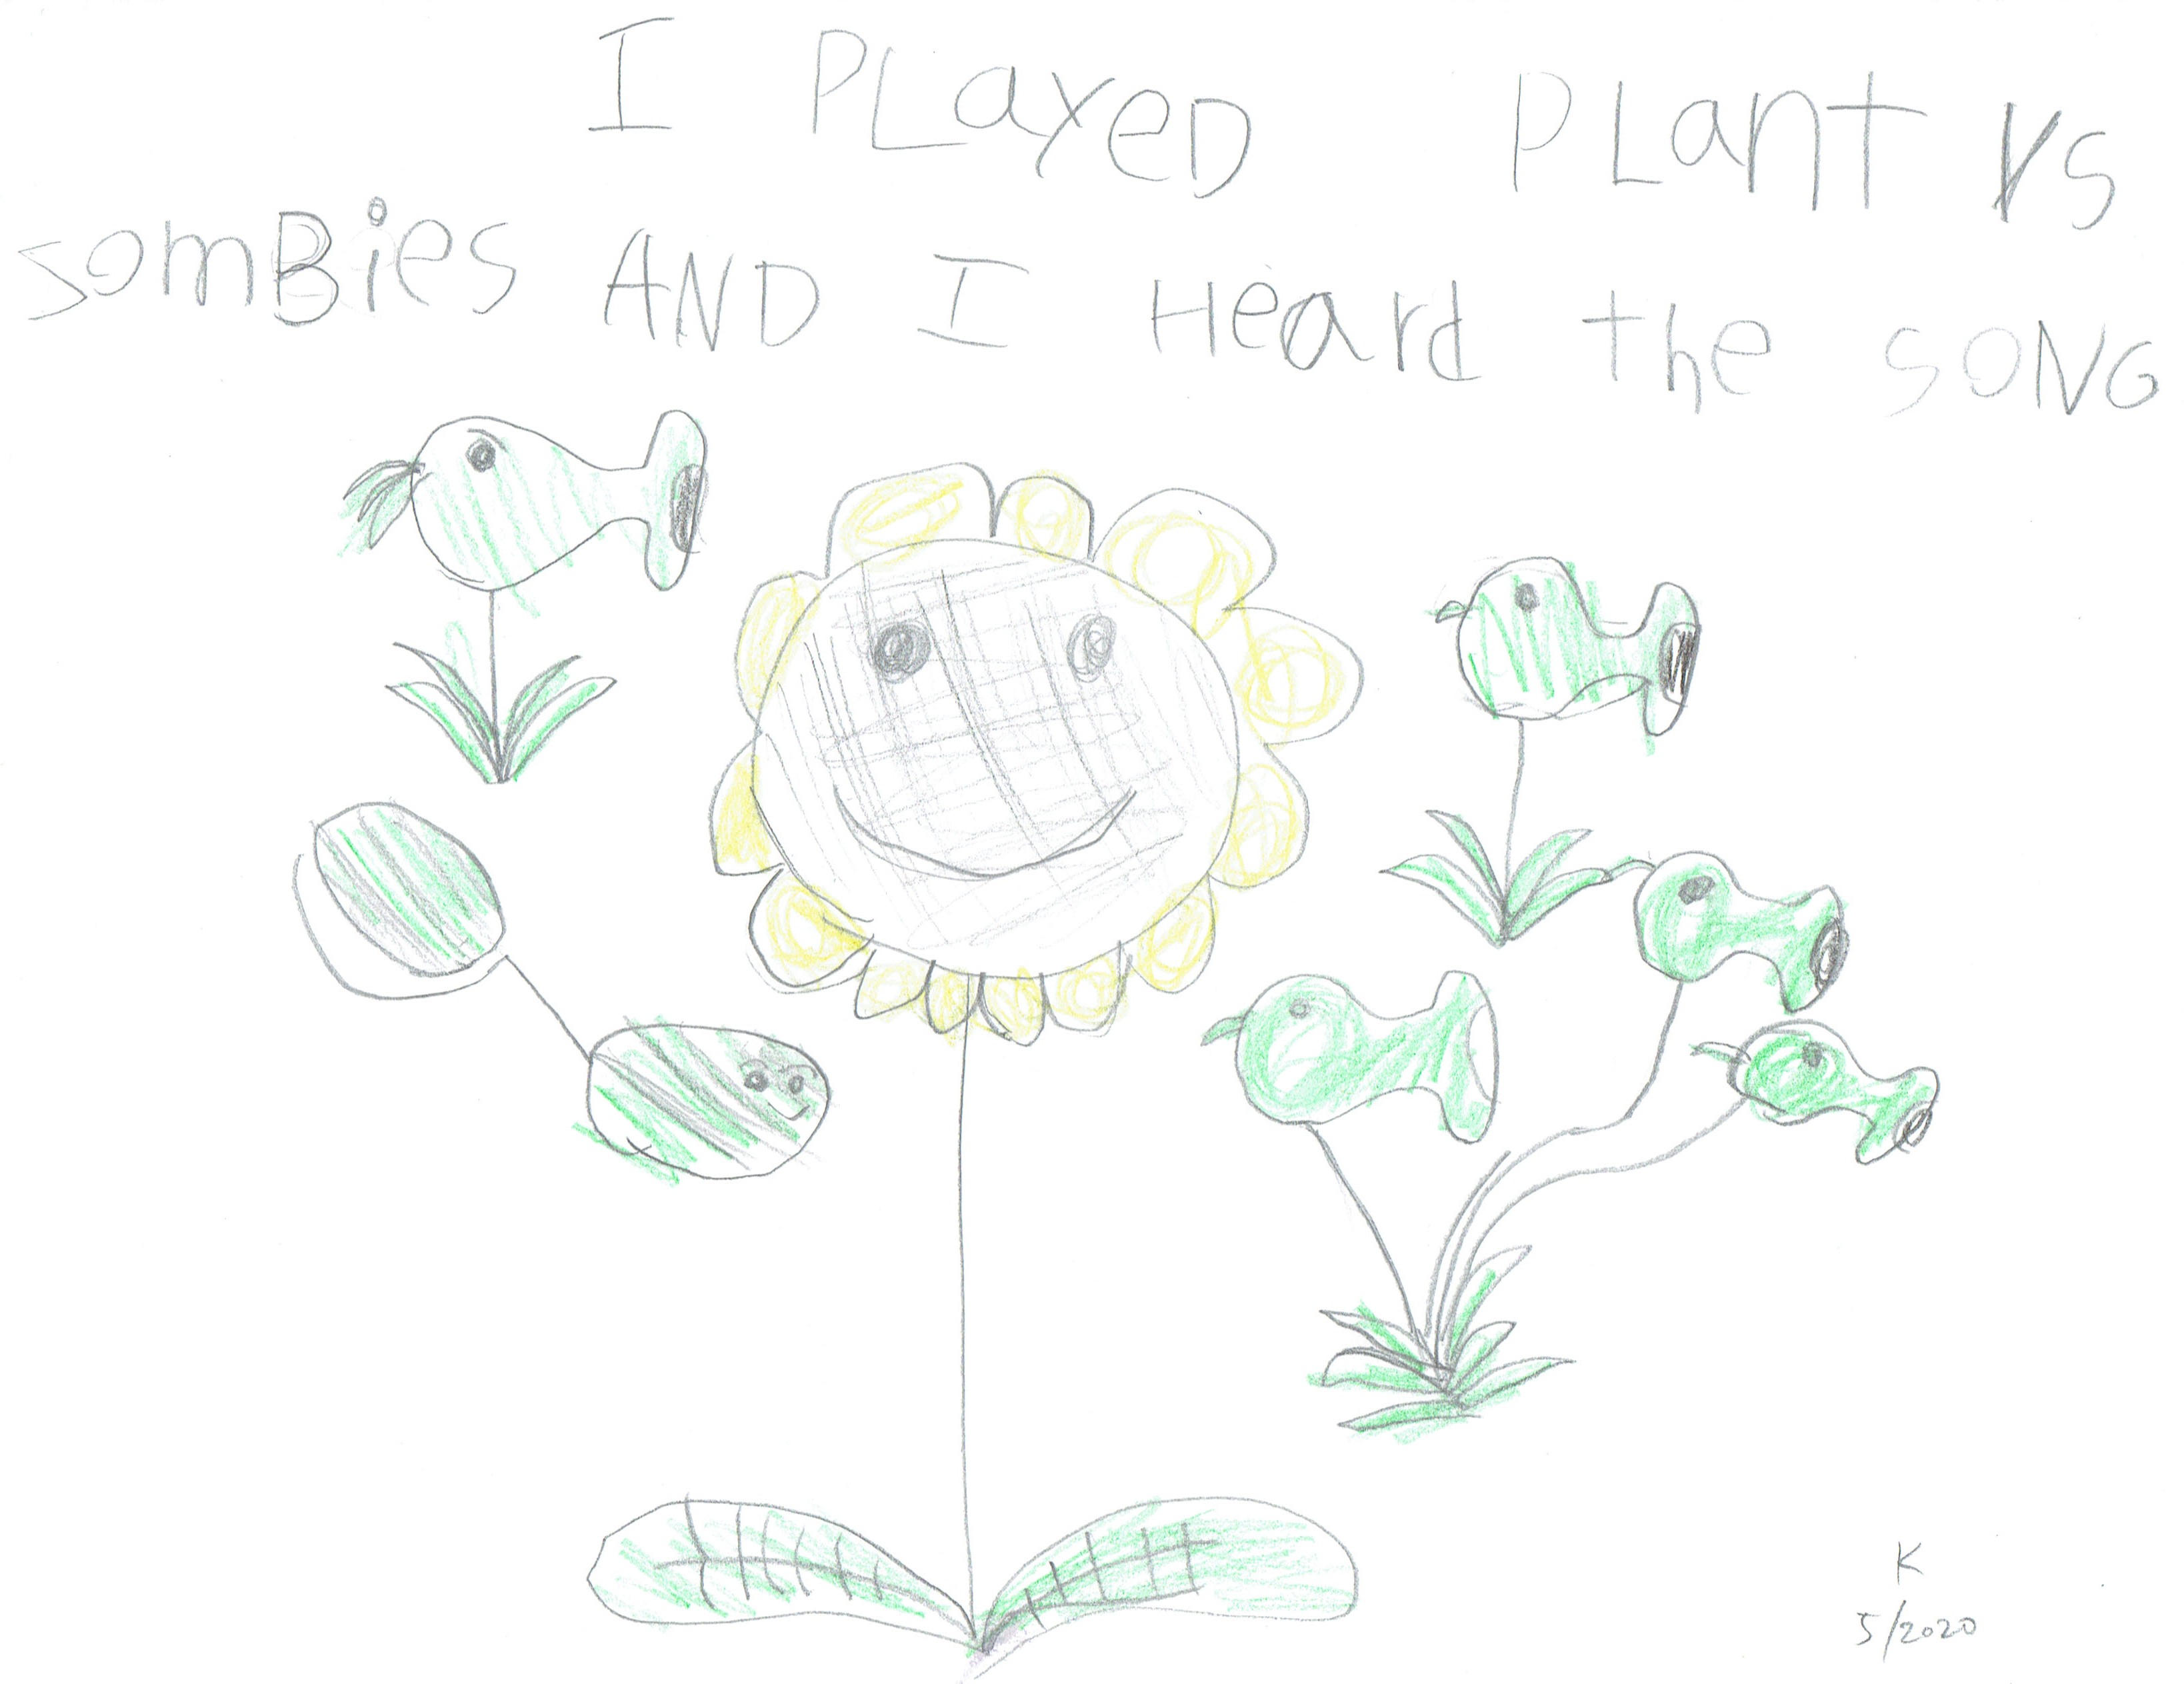 I PLayeD PLant vs
somBies AND I Heard the SONG
K
5/2020